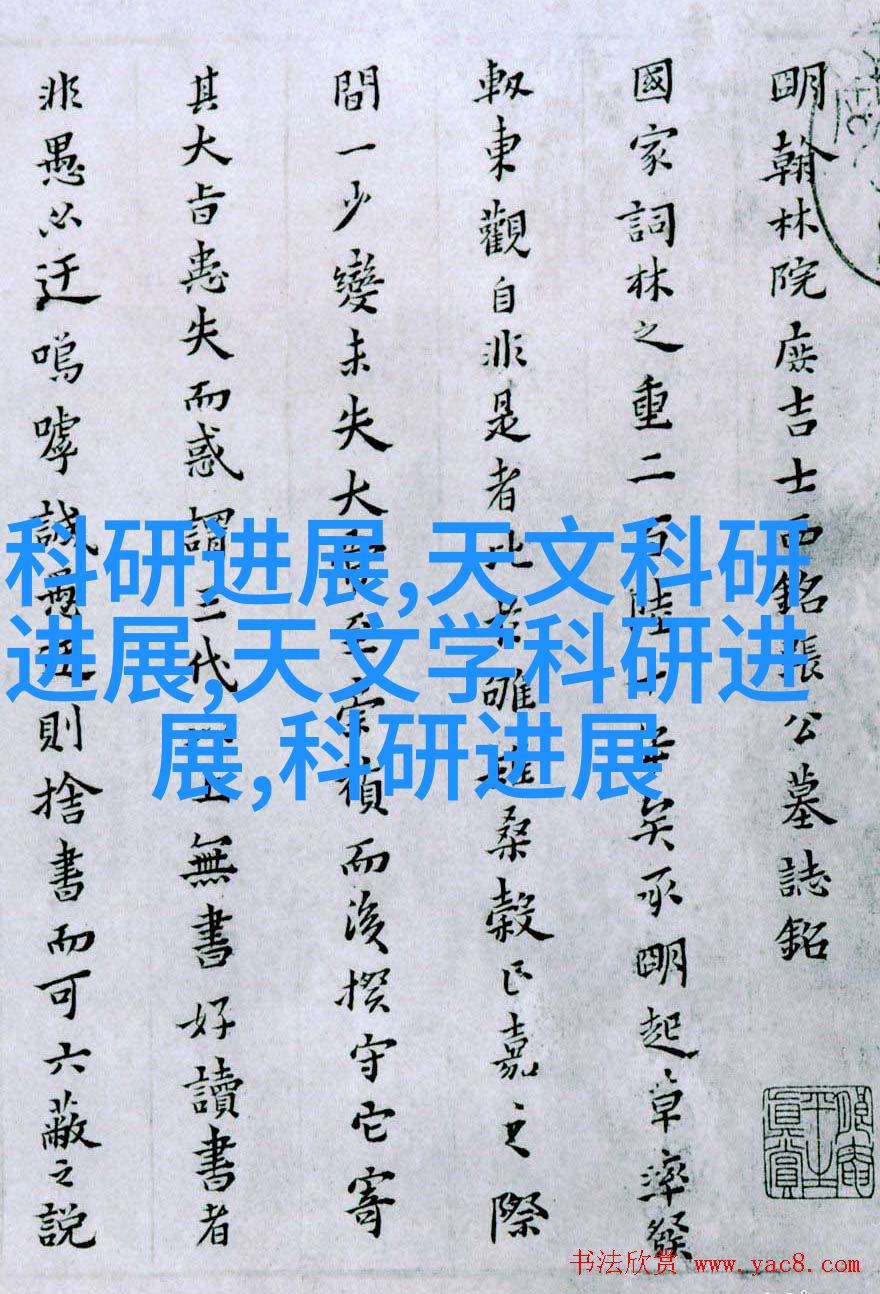 明翰林院庶吉士西銘張公墓誌銘
國家詞林之重二百陸矣承明起草率繇
東觀自非是者比於雖桑穀正嘉之際
間一少變未失大至宗禎而後揆守它寄
其大旨患失而惑謂三代無書好讀書者
非愚必迂嗚嘑誠則捨書而可六蔽之説
科研进展,天文科研
进展,天文学科研进
展,科研进展
书法欣赏 www.yac8.com